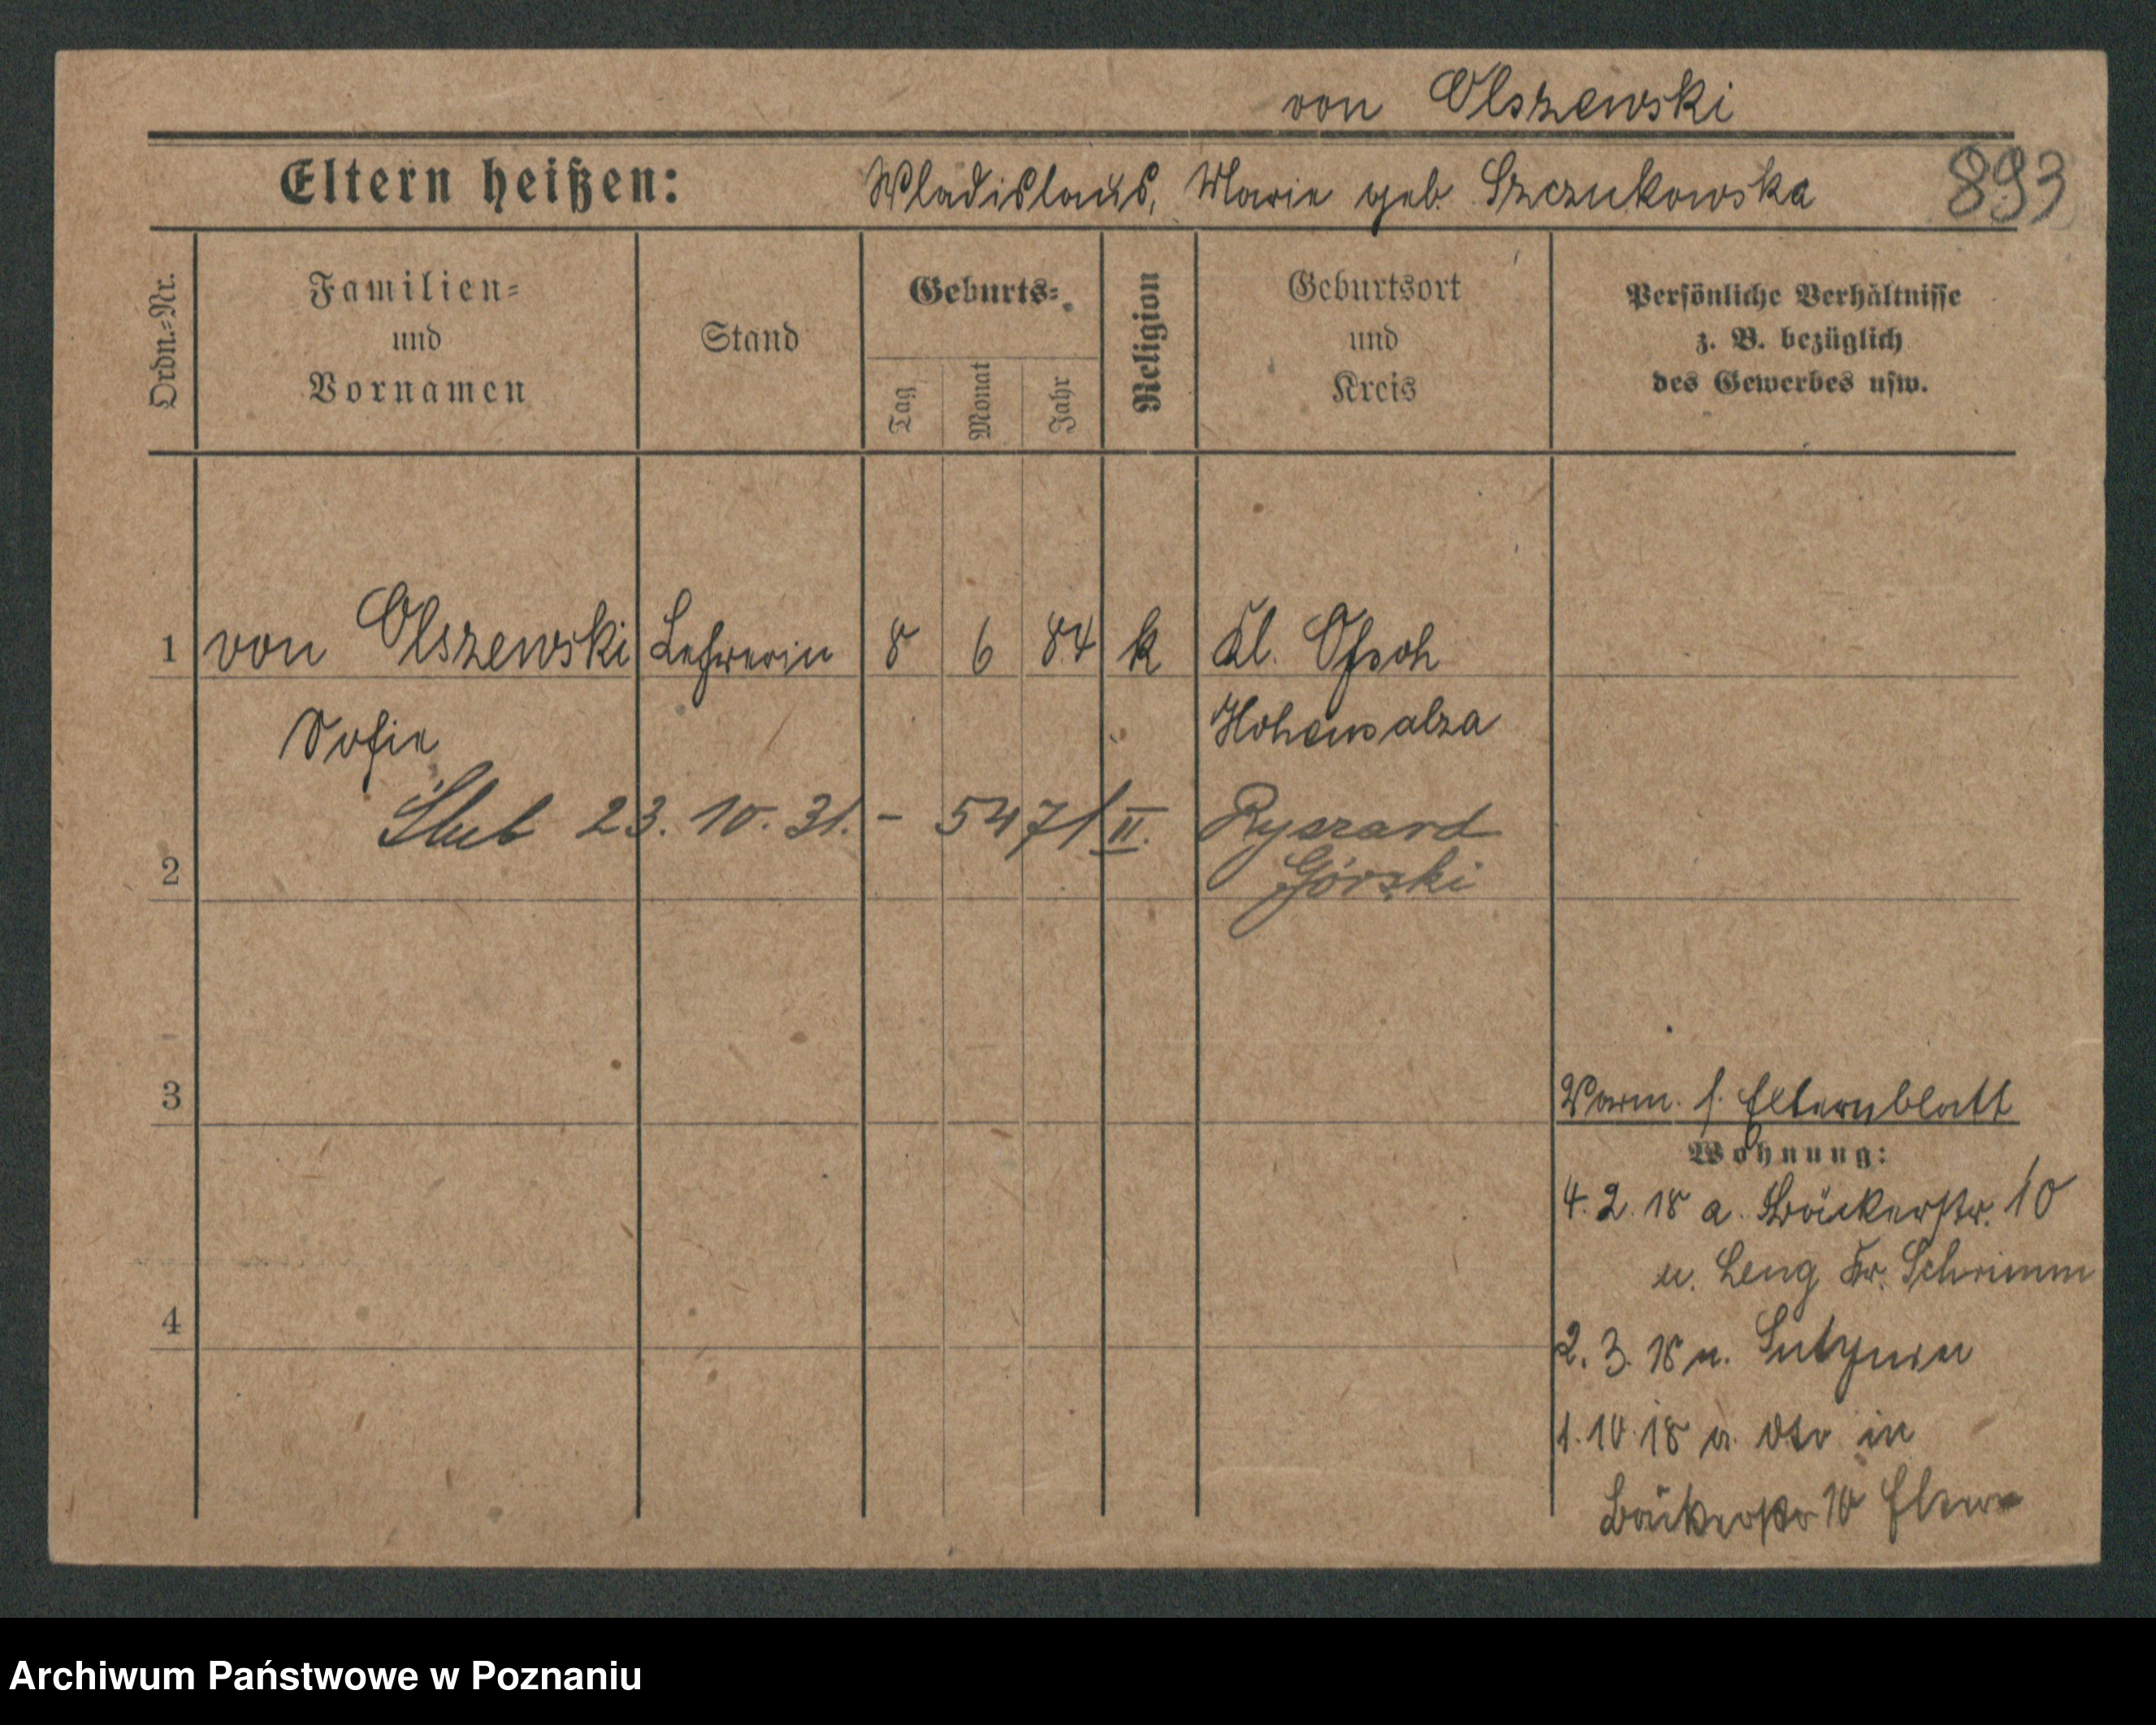 von Olszewski
Eltern heißen: Wladislaus, Marie geb. Szczukowska 893
Ordn.=Nr.
Familien=
und
Vornamen
Stand
Geburts=
Tag
Monat
Jahr
Religion
Geburtsort
und
Kreis
Persönliche Verhältnisse
z. B. bezüglich
des Gewerbes usw.
1 von Olszewski Lehrerin 8 6 84 k Kl.
Sofie Hohensalza
Ślub 23. 10. 31. - 5471/II. Ryszard
Górski
2
3
Vorm. s. Elternblatt
Wohnung:
4. 2. 18 a. Bäckerstr. 10
u. Leng Kr. Schrimm
4
2. 3. 18 n.
1. 10. 18 a. dto in
Bäckerstr 10 Eltern
Archiwum Państwowe w Poznaniu